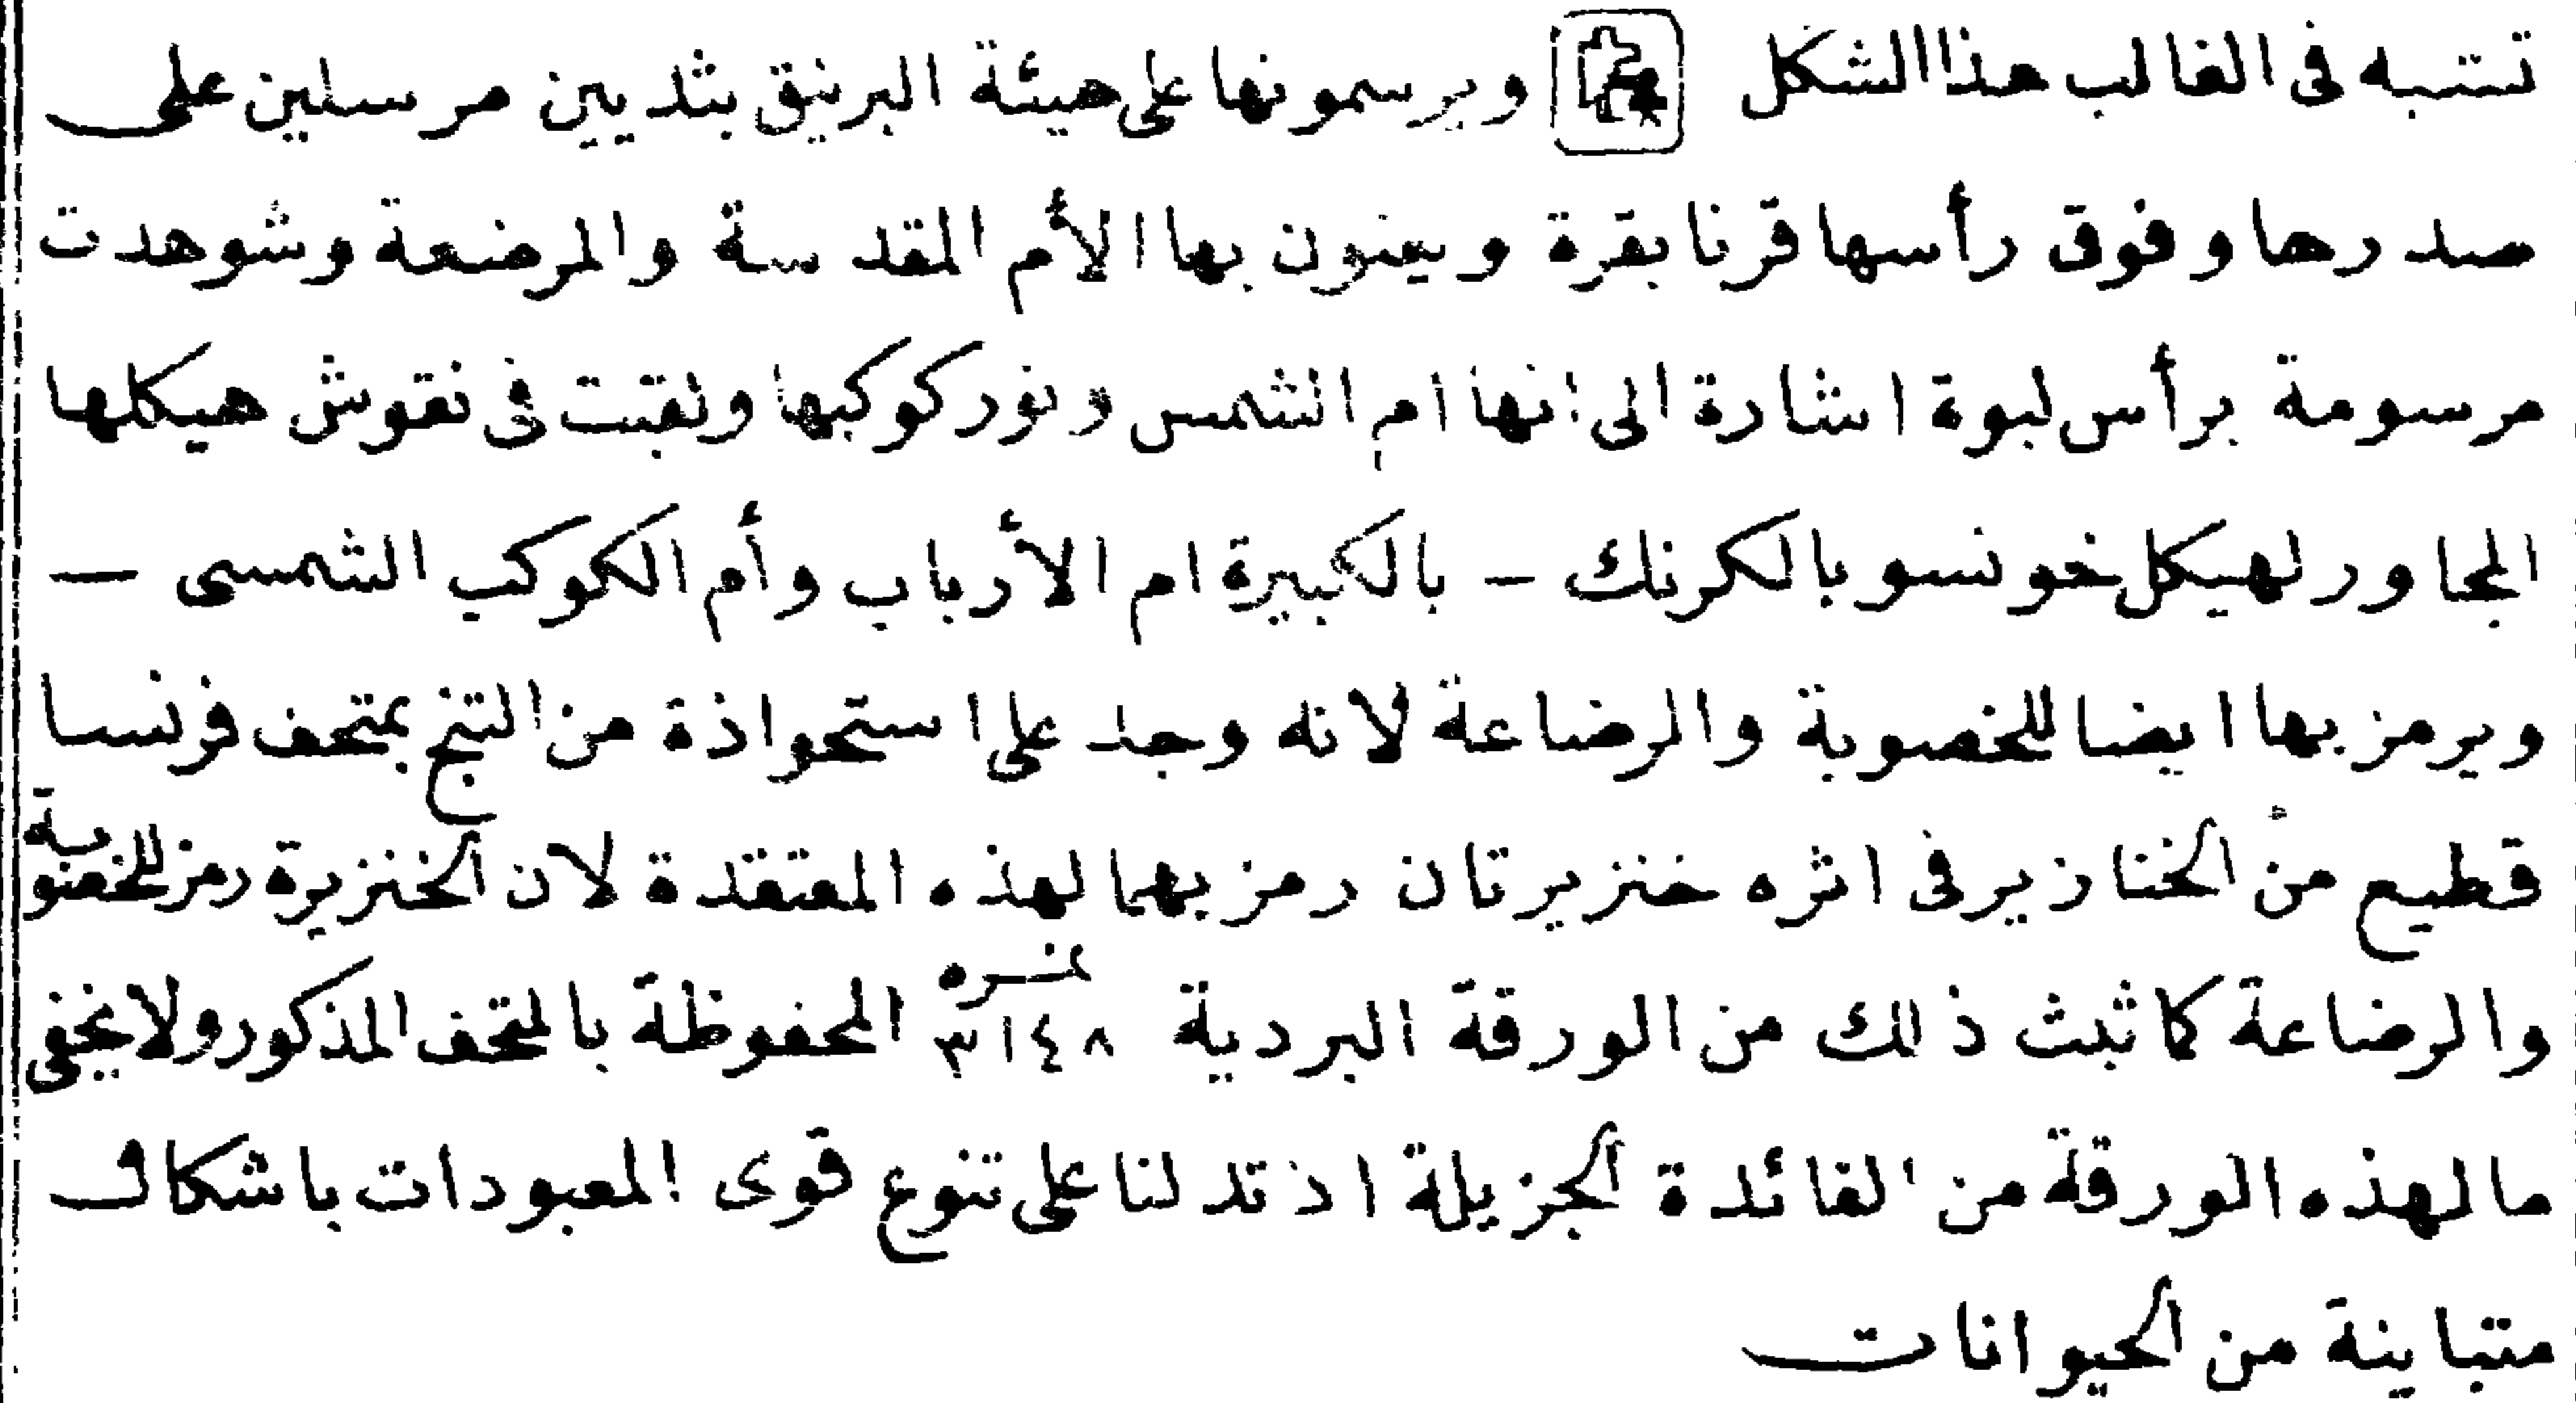 تشبه فى الغالب هذا الشكل ويرسمونها على هيئة البرنيق بثديين مرسلين على
صدرها وفوق رأسها قرنا بقرة ويعنون بها الأم المقدسة والمرضعة وشوهدت
مرسومة برأس لبوة اشارة الى انها ام الشمس ونور كوكبها ولقبت فى نقوش هيكلها
المجاور لهيكل خونسو بالكرنك – بالكبيرة ام الأرباب وأم الكوكب الشمسى –
ويرمز بها ايضا للخصوبة والرضاعة لانه وجد على استحواذة من التبخ بمتحف فرنسا
قطيع من الخنازير فى اثره خنزيرتان رمز بهما لهذه المعتقدة لان الخنزيرة رمز للخصوبة
والرضاعة كما ثبث ذلك من الورقة البردية نمره ٣١٤٨ المحفوظة بالمتحف المذكور ولا يخفى
ما لهذه الورقة من الفائدة الجزيلة اذ تدلنا على تنوع قوى المعبودات باشكال
متباينة من الحيوانات